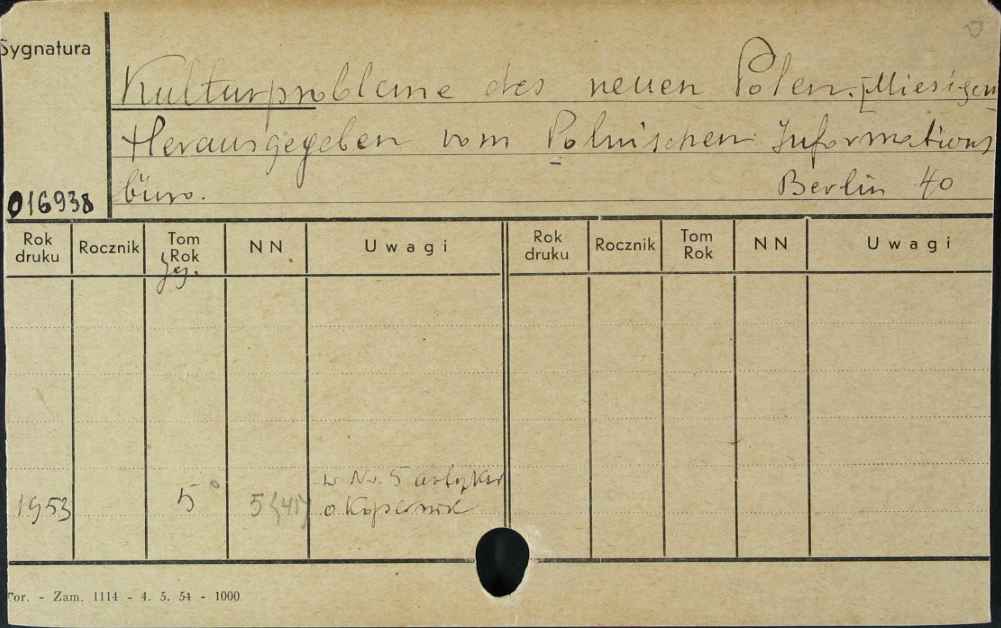 Sygnatura
Kulturprobleme des neuen Polen. [Miesięcz
Herausgegeben vom Polnischen Informations
büro. Berlin 40
016938
Rok druku Rocznik Tom Rok NN Uwagi Rok druku Rocznik Tom Rok NN Uwagi
Jg.
w Nr. 5 artykuł
1953 5° 5 (41) o Koperniku
Tor. - Zam. 1114 - 4. 5. 54 - 1000